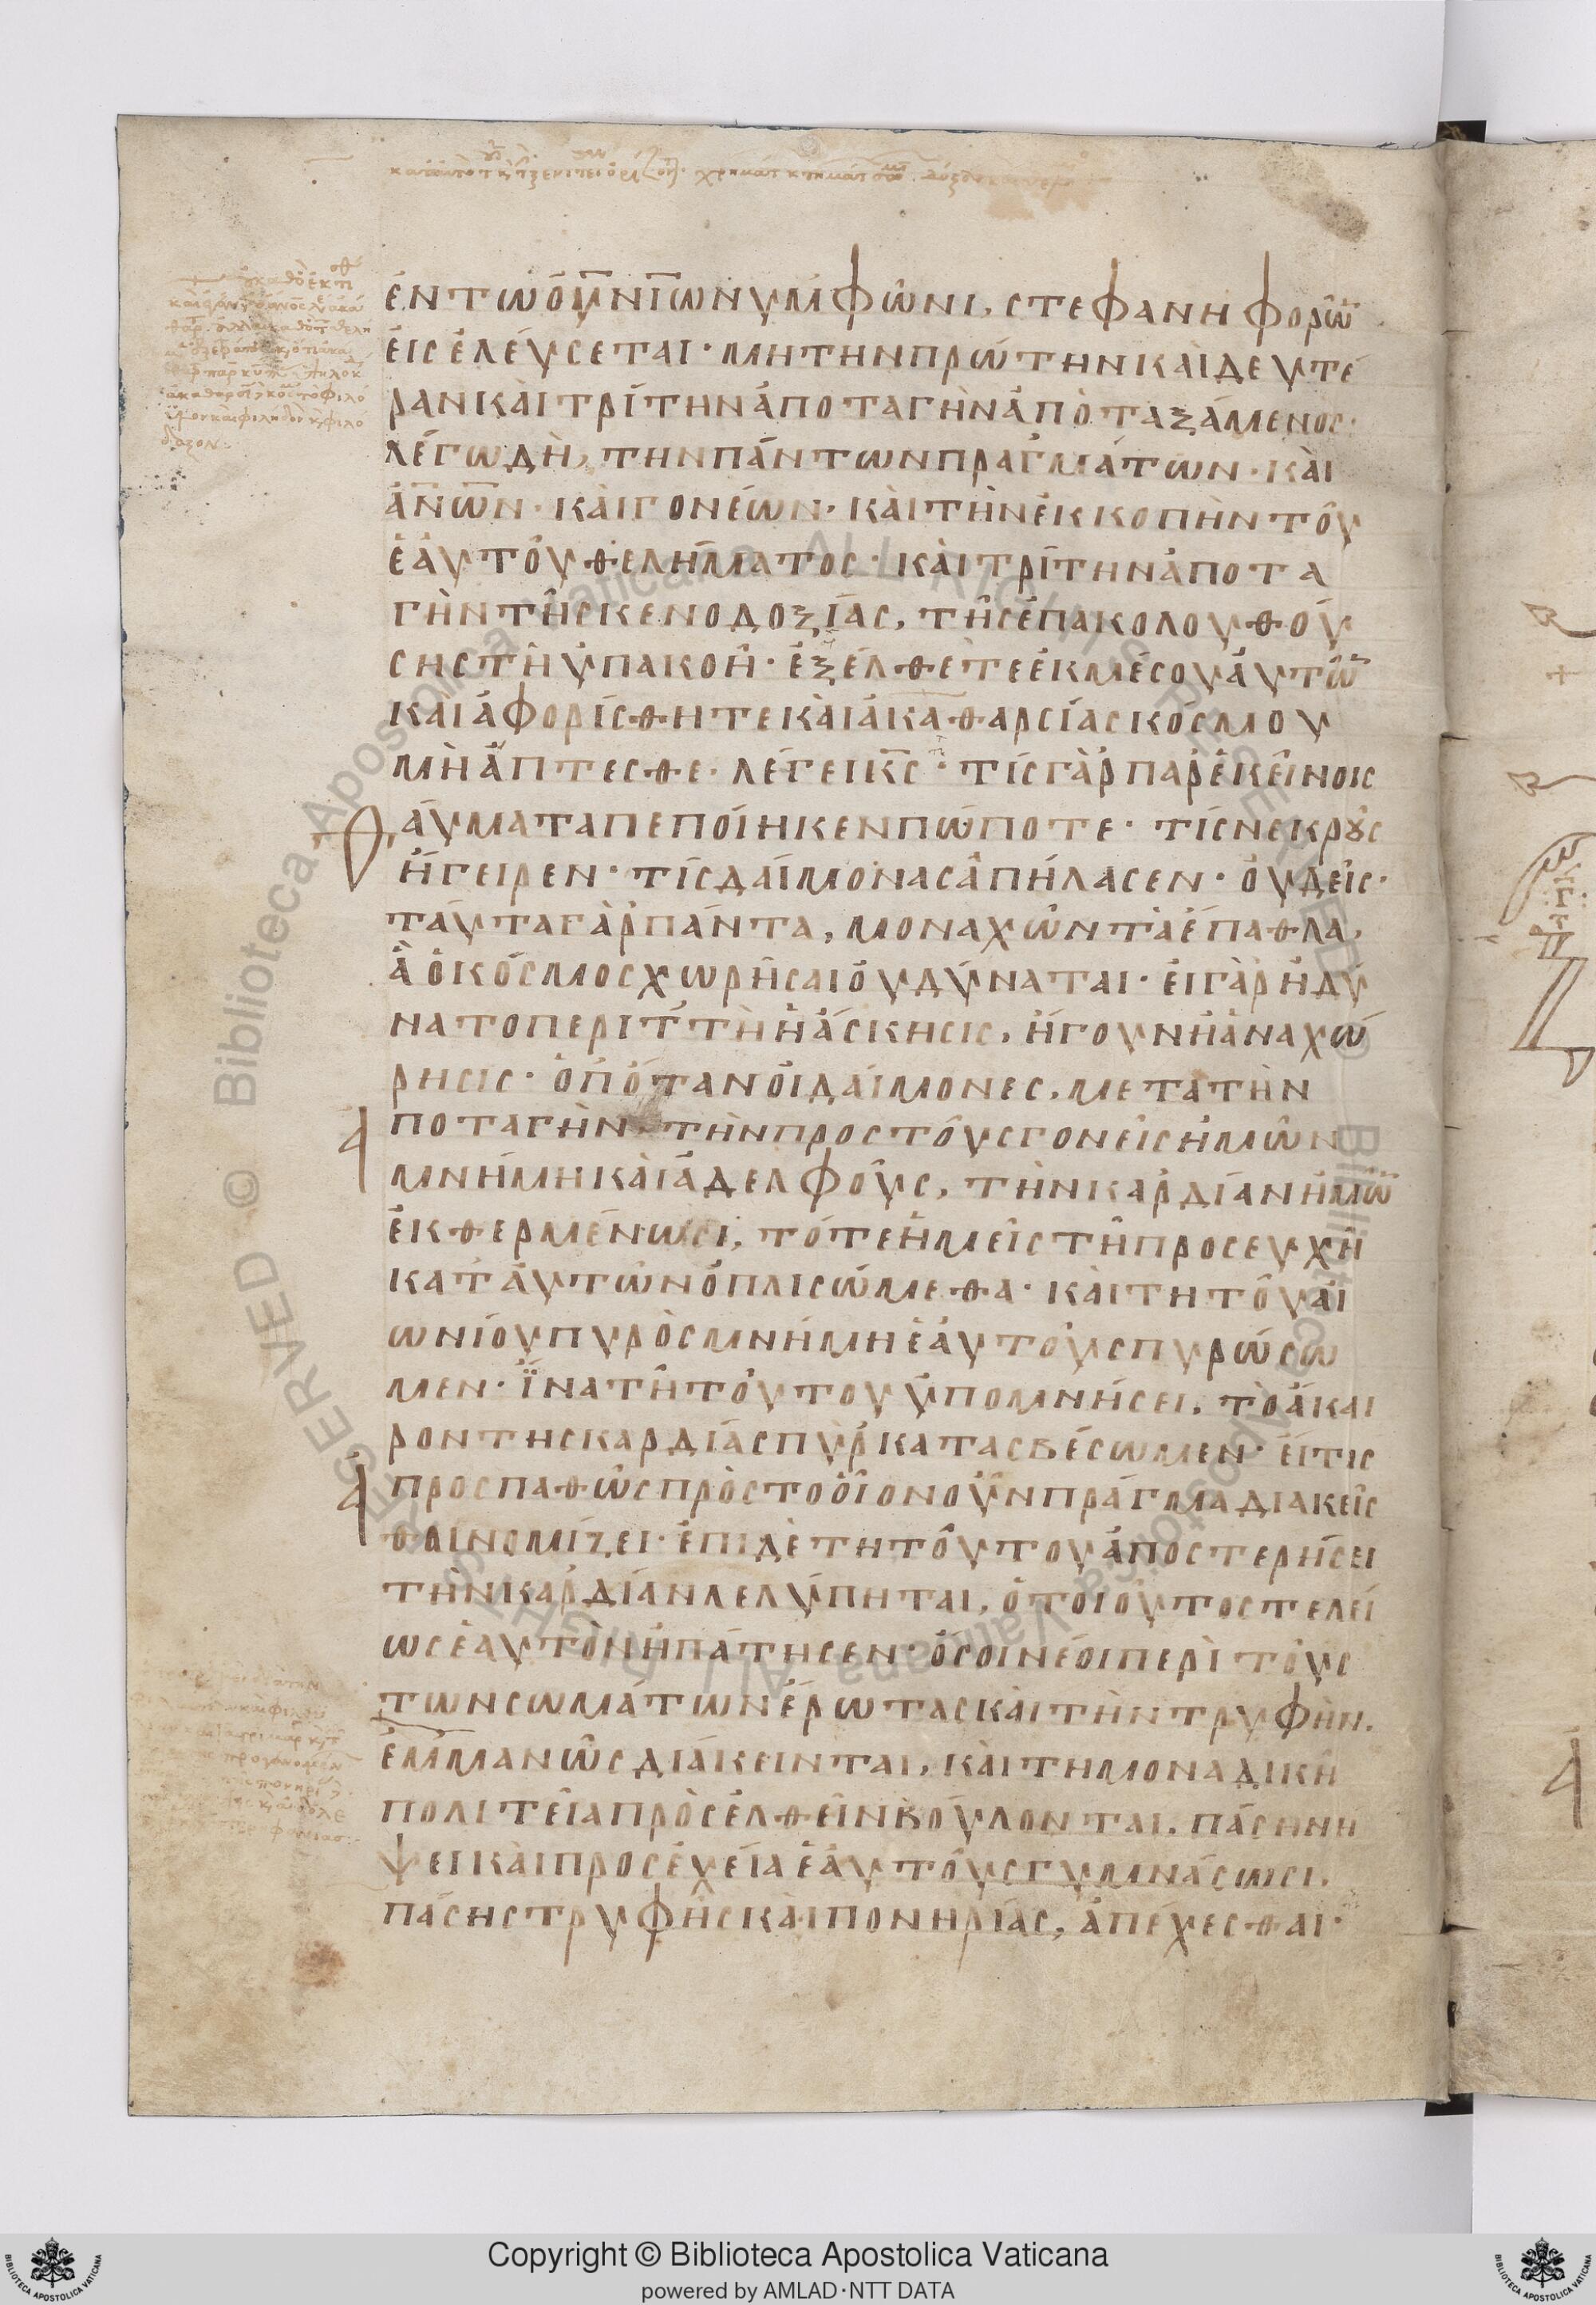 ἐν τῷ οὐνίῳ νυμφῶνι, στεφανηφορῶ
εἰσελεύσεται· μὴ τὴν πρώτην καὶ δευτέ
ραν καὶ τρίτην ἀποταγὴν ἀποταξάμενος·
λέγω δὴ, τὴν πάντων πραγμάτων· καὶ
ἀνων· καὶ γονέων· καὶ τὴν ἐκκοπὴν τοῦ
ἑαυτοῦ θελήματος· καὶ τρίτην ἀποτα
γὴν τῆς κενοδοξίας, τῆς ἐπακολουθού
σης τῇ ὑπακοῇ· ἐξέλθετε ἐκ μέσου αὐτῶ
καὶ ἀφορίσθητε καὶ ἀκαθαρσίας κόσμου
μὴ ἅπτεσθε· λέγει κς· τίς γὰρ παρ' ἐκείνοις
θαύματα πεποίηκεν πώποτε· τίς νεκροὺς
ἤγειρεν· τίς δαίμονας ἀπήλασεν· οὐδείς·
ταῦτα γὰρ πάντα, μοναχῶν τὰ ἔπαθλα,
ἃ ὁ κόσμος χωρῆσαι οὐ δύναται· εἰ γὰρ ἠδύ
νατο περιττὴ ἡ ἄσκησις, ἤγουν ἡ ἀναχώ
ρησις· ὁπόταν οἱ δαίμονες, μετὰ τὴν
ποταγὴν, τὴν πρὸς τοὺς γονεῖς ἡμῶν
μνήμη καὶ ἀδελφοὺς, τὴν καρδίαν ἡμῶ
ἐκθερμένωσι, τότε ἡμεῖς τῇ προσευχῇ
κατ' αὐτῶν ὁπλισώμεθα· καὶ τῇ τοῦ αἰ
ωνίου πυρὸς μνήμη ἑαυτοὺς πυρώσω
μεν· ἵνα τῇ τούτου ὑπομνήσει, τὸ ἄκαι
ρον τῆς καρδίας πῦρ κατασβέσωμεν· εἴ τις
προσπαθῶς πρὸς τὸ οἷον οὖν πρᾶγμα διακεῖς
θαι νομίζει· ἐπὶ δὲ τῇ τούτου ἀποστερήσει
τὴν καρδίαν λελύπηται, ὁ τοιοῦτος τελεί
ως ἑαυτὸν ἠπάτησεν· ὅσοι νέοι περὶ τοὺς
τῶν σωμάτων ἔρωτας καὶ τὴν τρυφὴν,
ἐμμανῶς διάκεινται, καὶ τῇ μοναδικῇ
πολιτεία προσελθεῖν βούλονται, πάσῃ νή
ψει καὶ προσευχεία ἑαυτοὺς γυμνάσωσι,
πάσης τρυφῆς καὶ πονηρίας, ἀπέχεσθαι·
Copyright © Biblioteca Apostolica Vaticana
powered by AMLAD·NTT DATA